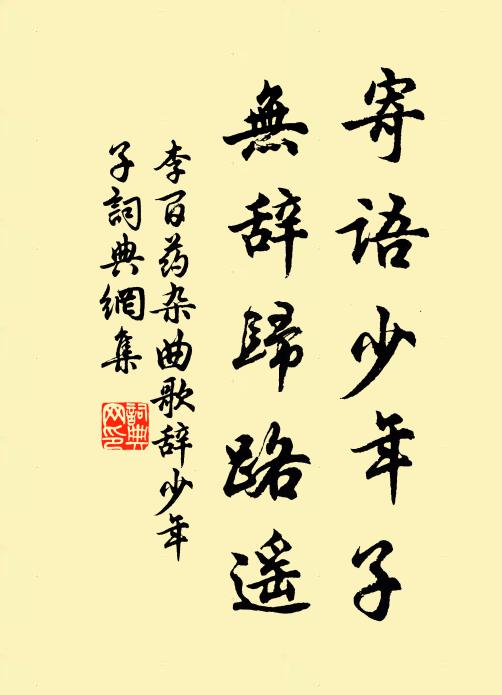 寄语少年子
無辞歸路遥
李百药杂曲歌辞少年
子詞典網集
詞典
网印